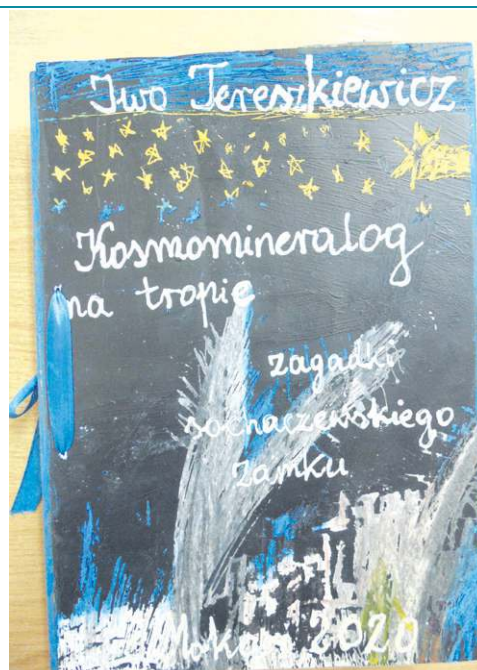 Iwo Tereszkiewicz
Kosmomineralog
na tropie
zagadki
sochaczewskiego
zamku
2020